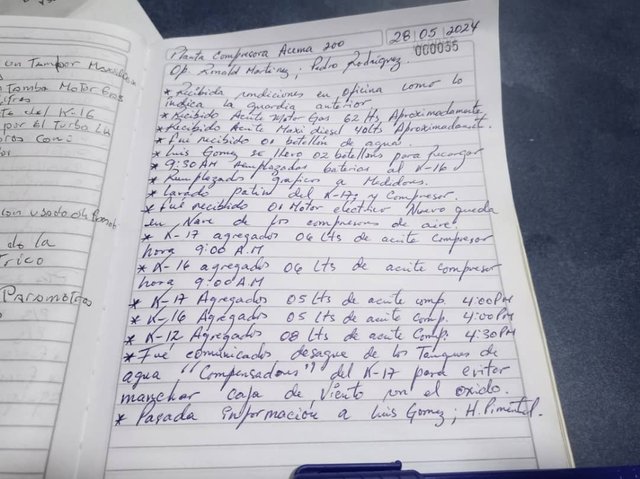 un Tambor
Tambo Motor Gas
del K-16
por El Turbo
Como
con usado
do la
trico
Parametros
28 05 2024
000035
Planta Compresora Acema 200
Op. Ronald Martinez; Pedro Rodriguez.
* Recibida condiciones en oficina como lo
indica la guardia anterior
* Recibido Aceite Motor Gas 62 Lts Aproximadamente
* Recibido Aceite Maxi diesel 40 Lts Aproximadament.
* Fué recibido 01 botellon de agua.
* Luis Gomez se llevo 02 botellons para Recargar
* 9:30 AM Remplazadas baterias al K-16
* Remplazados graficos a Medidores.
* Lavado patin del K-17, y Compresor.
* Fué recibido 01 Motor electrico Nuevo queda
en Nave de los compresores de aire.
* K-17 agregados 06 Lts de aceite Compresor
hora 9:00 A.M
* K-16 agregados 06 Lts de aceite compresor
hora 9:00 A.M
* K-17 Agregados 05 Lts de aceite comp. 4:00 PM
* K-16 Agregados 05 Lts de aceite comp. 4:00 PM
* K-12 Agregados 08 Lts de aceite Comp: 4:30 PM
* Fué comunicados desague de los Tanques de
agua "Compensadores" del K-17 para evitar
manchar caja de viento con el oxido.
* Pasada información a Luis Gomez; H. Pimentel.